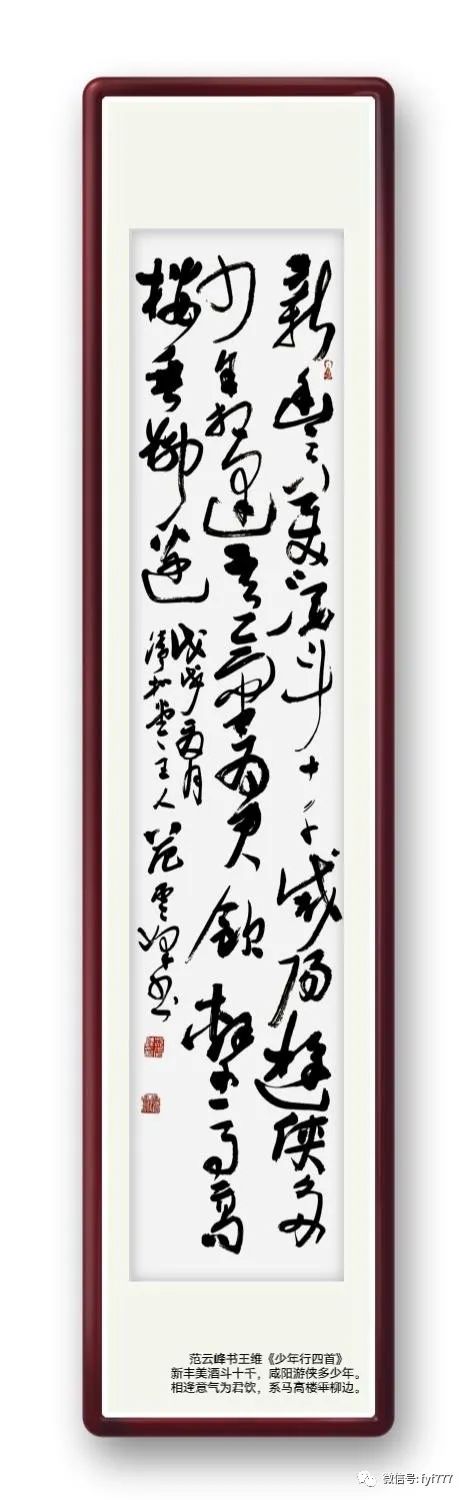 新豐美酒斗十千咸陽遊俠多
少年相逢意氣為君飲繫馬高
樓垂柳邊
戊戌夏月
主人
范雲峰書
范云峰书王维《少年行四首》
新丰美酒斗十千，咸阳游侠多少年。
相逢意气为君饮，系马高楼垂柳边。
微信号: fyf777